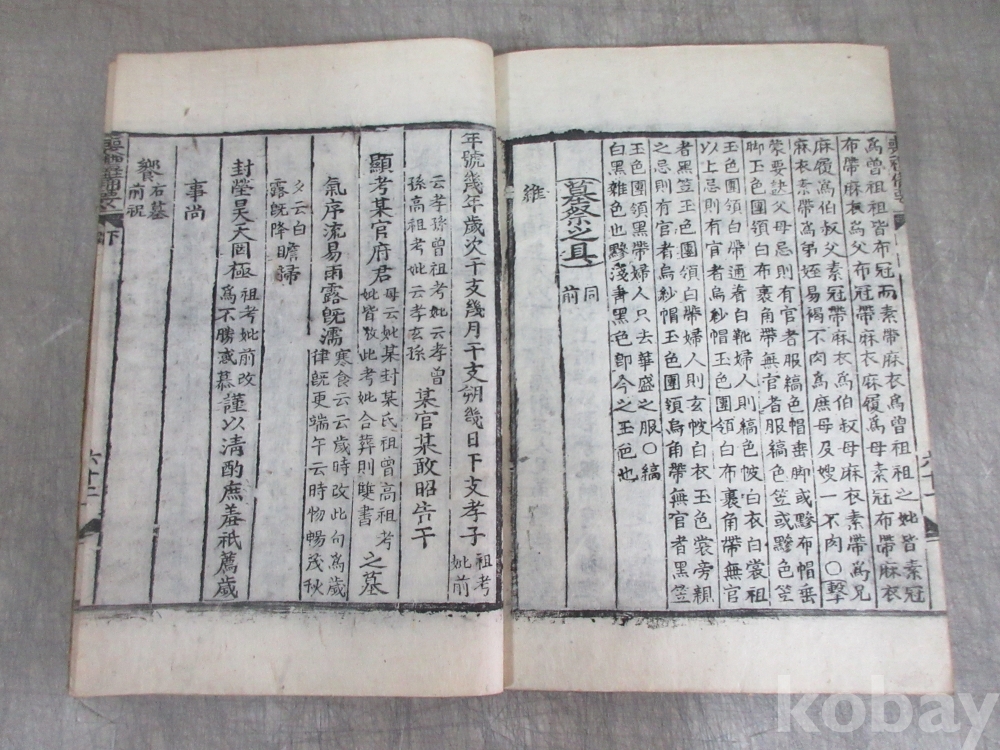 爲曾祖祖皆布冠而素帶麻衣爲曾祖祖之妣皆素冠
布帶麻衣爲父布冠帶麻衣麻履爲母素冠布帶麻衣
麻履爲伯叔父素冠帶麻衣爲伯叔母麻衣素帶爲兄
麻衣素帶爲弟姪易褐不肉爲庶母及嫂一不肉○擊
蒙要訣父母忌則有官者服縞色帽垂脚或黲布帽垂
脚玉色團領白布裹角帶無官者服縞色笠或黲色笠
玉色團領白帶通着白靴婦人則縞色帔白衣白裳祖
以上忌則有官者烏紗帽玉色團領白布裹角帶無官
者黑笠玉色團領白帶婦人則玄帔白衣玉色裳旁親
之忌則有官者烏紗帽玉色團領烏角帶無官者黑笠
玉色團領黑帶婦人只去華盛之服○縞
白黑雜色也黲淺靑黑色卽今之玉色也
墓祭之具 同前
維
年號幾年歲次干支幾月干支朔幾日干支孝子 祖考妣前
云孝孫曾祖考妣云孝曾孫高祖考妣云孝玄孫 某官某敢昭告于
顯考某官府君 母云妣某封某氏祖曾高祖考妣皆倣此考妣合葬則雙書 之墓
氣序流易雨露旣濡 寒食云云歲時改此句爲歲律旣更端午云時物暢茂秋
夕云白露旣降 瞻歸
封塋昊天罔極 祖考妣前改爲不勝感慕 謹以淸酌庶羞祗薦歲
事尙
饗 右墓前祝
下
六十二
kobay